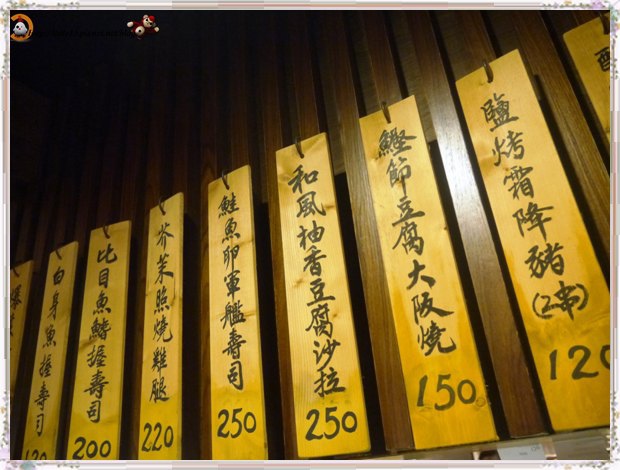 鹽烤霜降豬(2串) 120
鰹節豆腐大阪燒 150
和風柚香豆腐沙拉 250
鮭魚卵軍艦壽司 250
芥茉照燒雞腿 220
比目魚鰭握壽司 200
白身魚握壽司 120